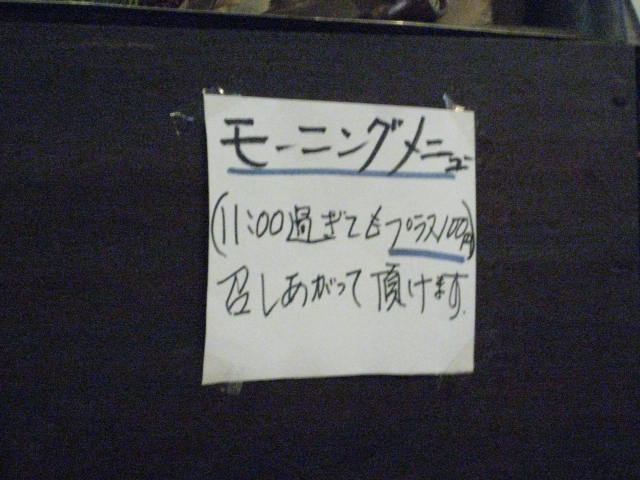 モーニングメニュー
(11:00過ぎてもプラス100円)
召しあがって頂けます.